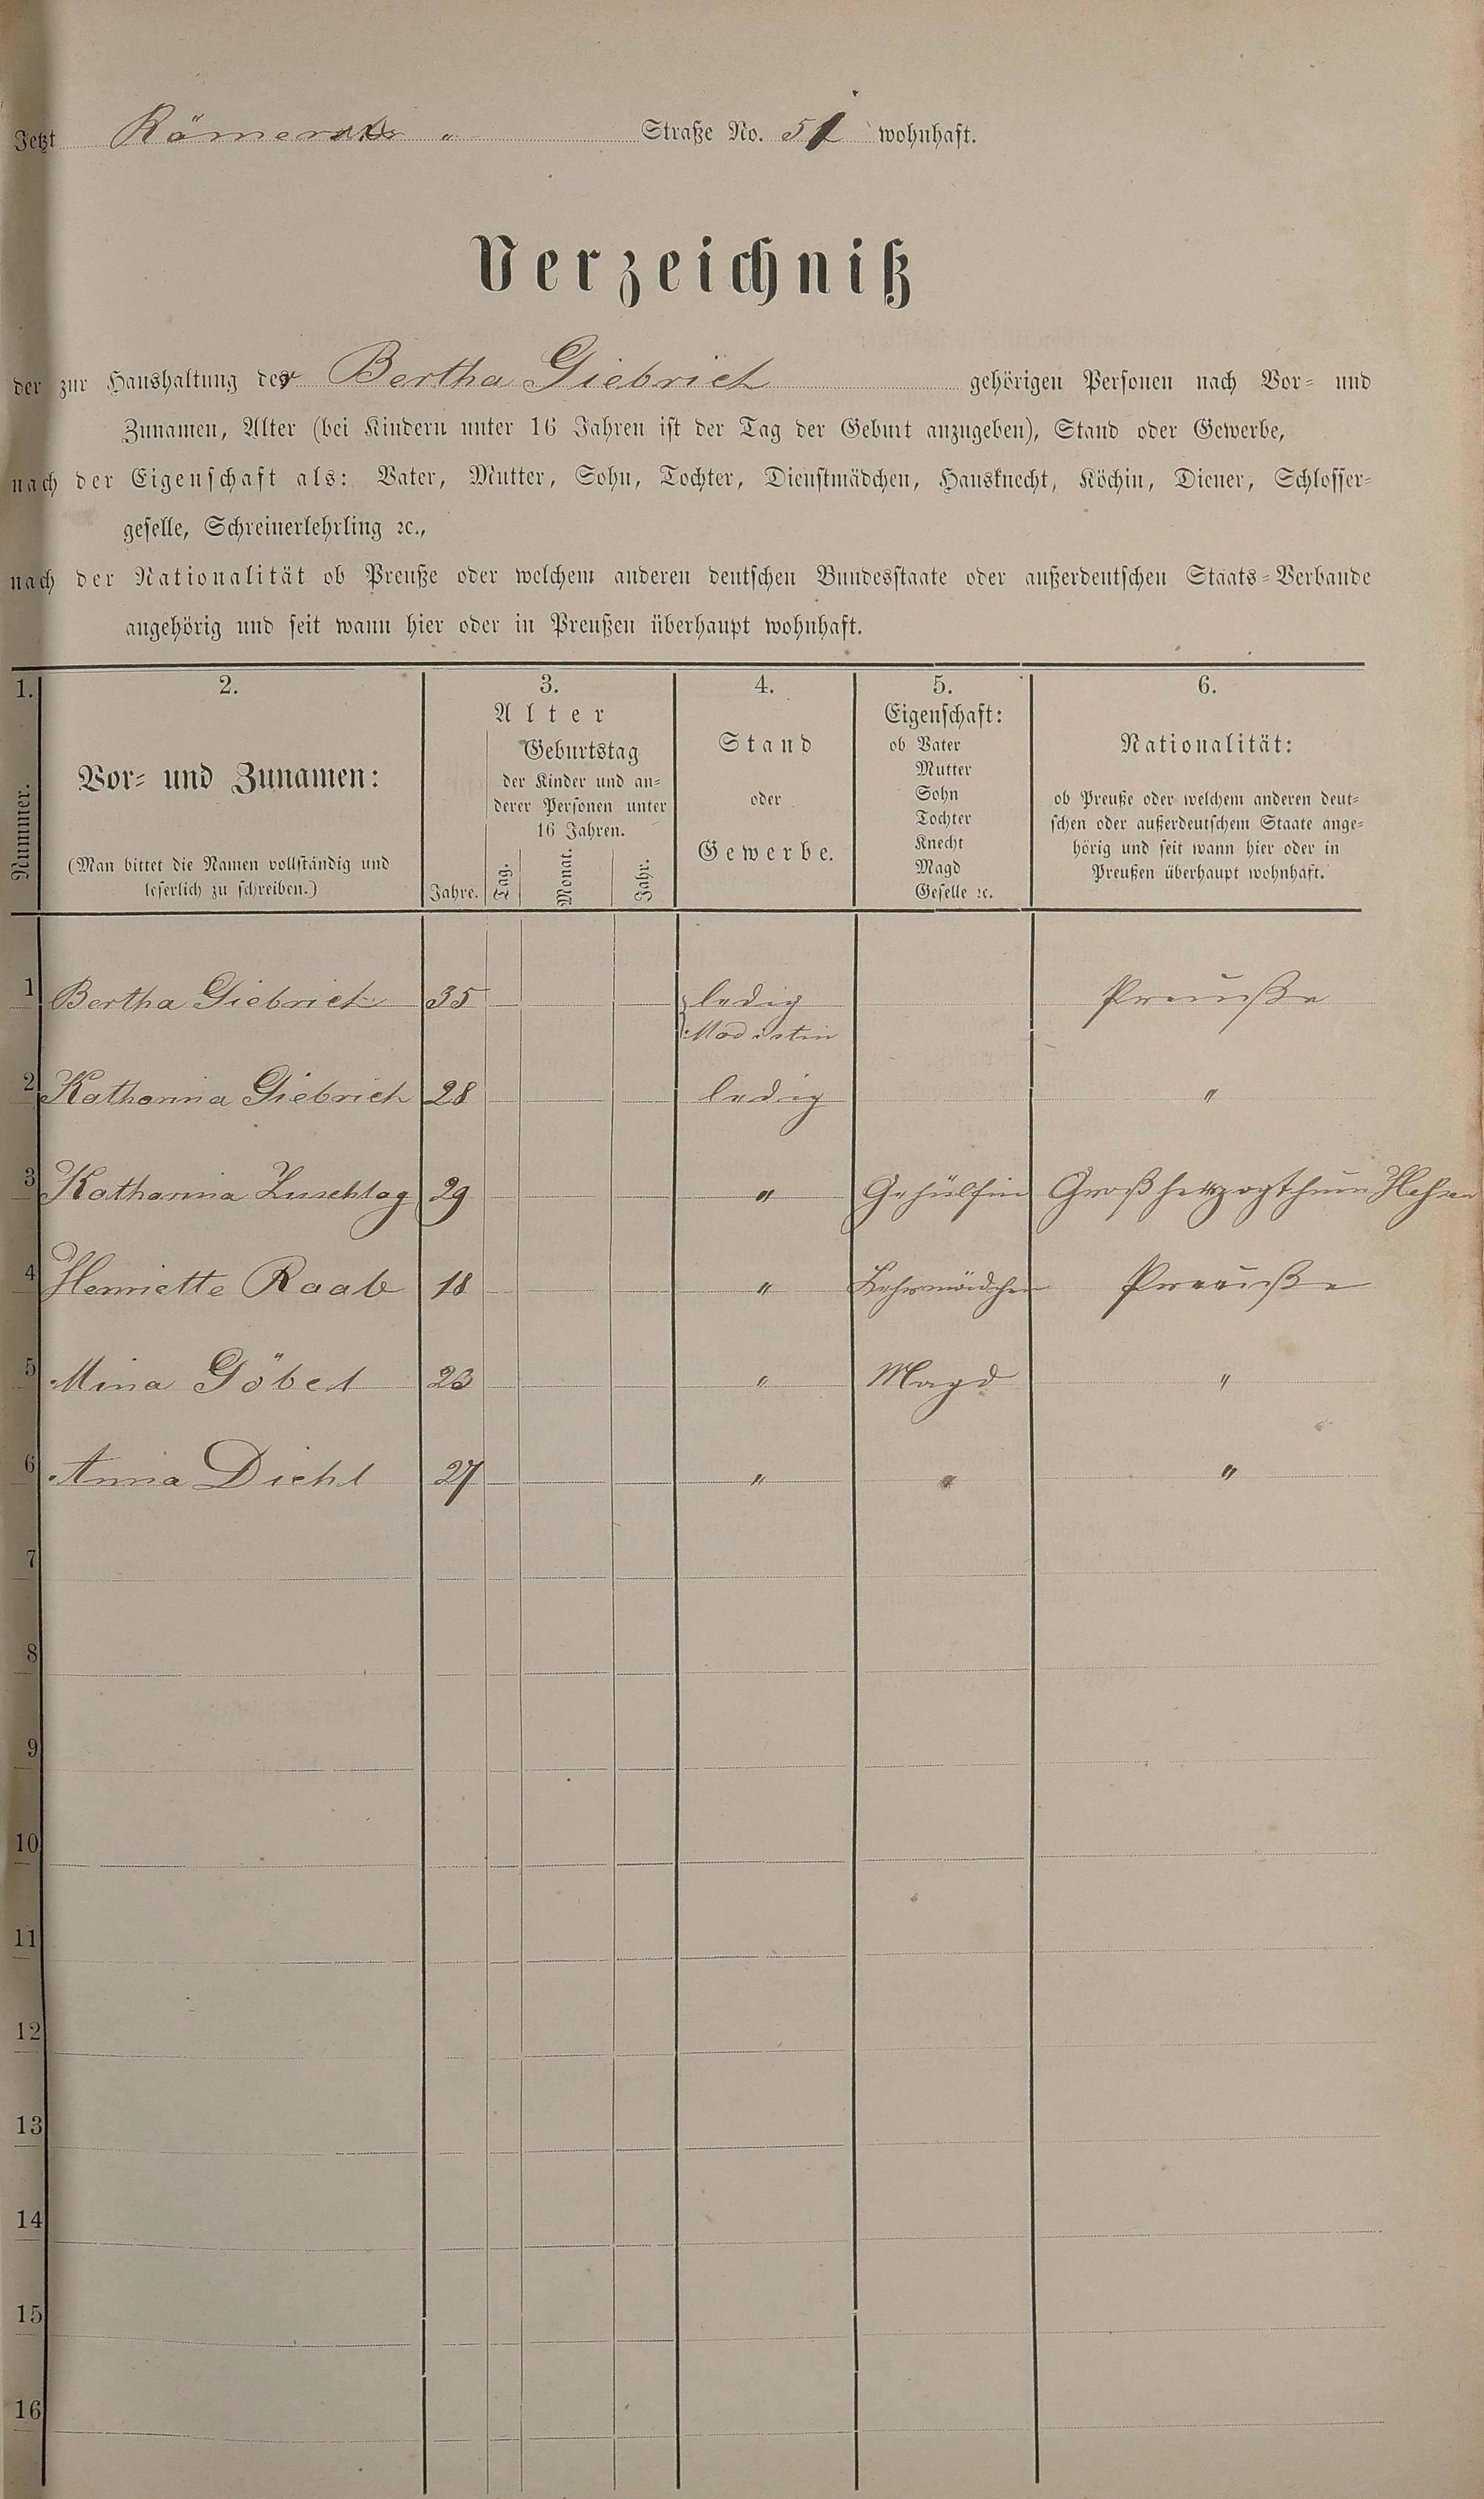 Jetzt Straße No. 51 wohnhaft.
Verzeichniß
der zur Haushaltung der Bertha Giebrich gehörigen Personen nach Vor- und
Zunamen, Alter (bei Kindern unter 16 Jahren ist der Tag der Geburt anzugeben), Stand oder Gewerbe,
nach der Eigenschaft als: Vater, Mutter, Sohn, Tochter, Dienstmädchen, Hausknecht, Köchin, Diener, Schlosser-
geselle, Schreinerlehrling ꝛc.,
nach der Nationalität ob Preuße oder welchem anderen deutschen Bundesstaate oder außerdeutschen Staats-Verbande
angehörig und seit wann hier oder in Preußen überhaupt wohnhaft.
1. 2. 3. 4. 5. 6.
Nummer.
Vor- und Zunamen:
(Man bittet die Namen vollständig und
leserlich zu schreiben.)
Alter
Jahre.
Geburtstag
der Kinder und an-
derer Personen unter
16 Jahren.
Tag. Monat. Jahr.
Stand
oder
Gewerbe.
Eigenschaft:
ob Vater
Mutter
Sohn
Tochter
Knecht
Magd
Geselle ꝛc.
Nationalität:
ob Preuße oder welchem anderen deut-
schen oder außerdeutschem Staate ange-
hörig und seit wann hier oder in
Preußen überhaupt wohnhaft.
1 Bertha Giebrich 35 ledig Preuße
Modistin
2 Katharina Giebrich 28 ledig "
3 Katharina Zuschlag 29 " Gehülfin Großherzogthum Hessen
4 Henriette Raab 18 " Lehrmädchen Preuße
5 Mina Göbel 23 " Magd "
6 Anna Diehl 27 " " "
7
8
9
10
11
12
13
14
15
16